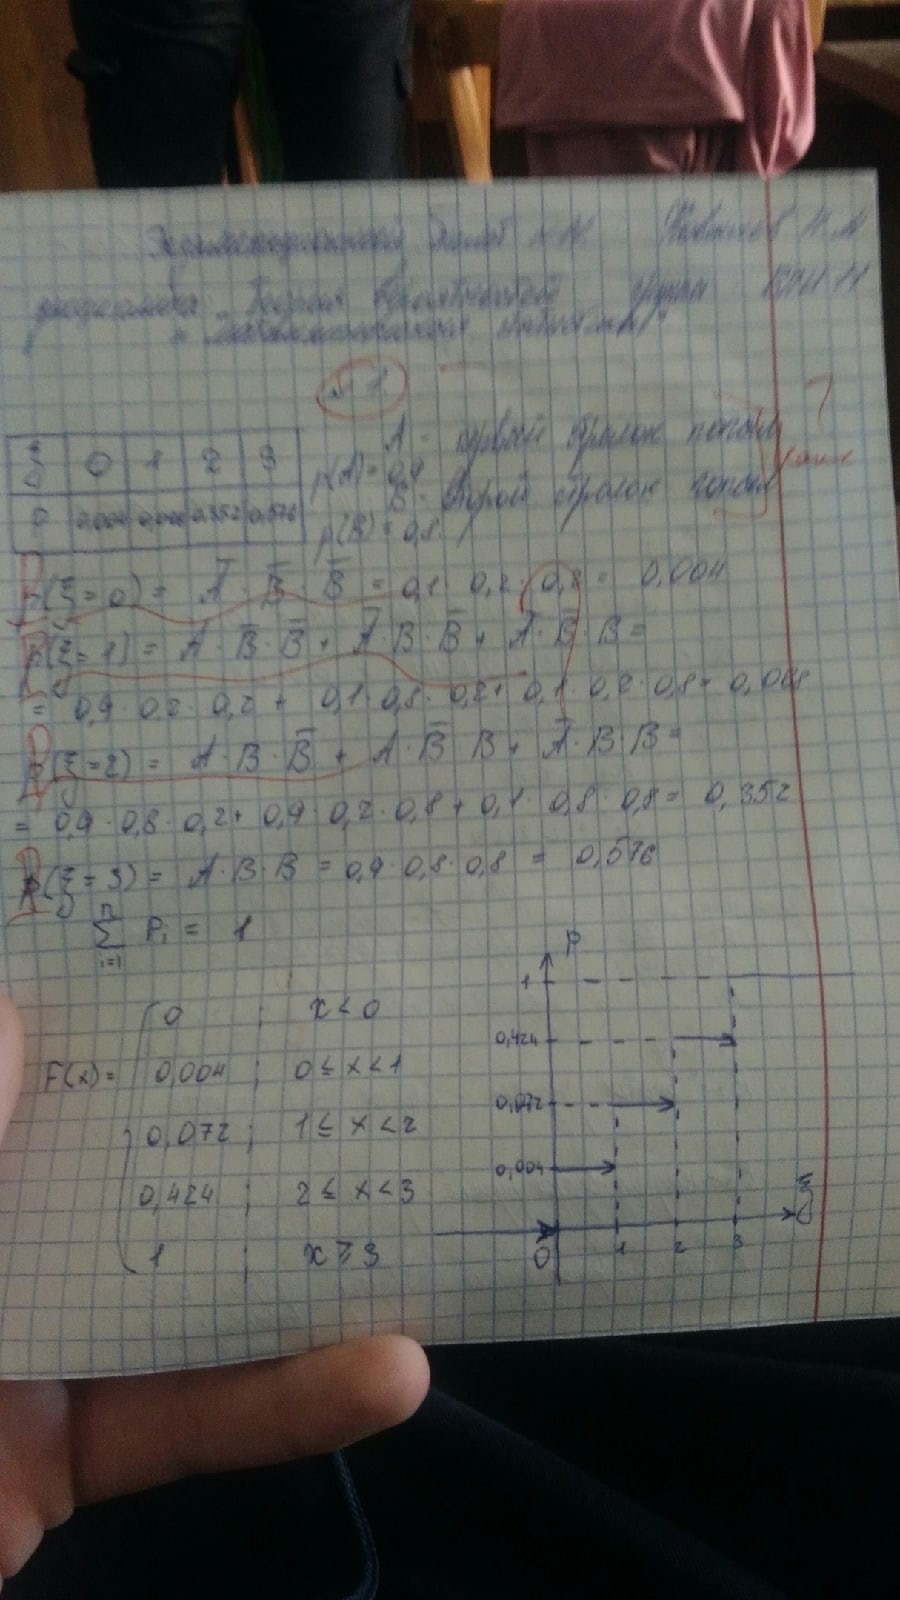 Экзаменационный билет
дисциплина "Теория вероятностей группа
и математическая статистика"
№ 1.
ξ 0 1 2 3
P 0,004 0,352 0,576
A - первый стрелок попал ?
p(A) = 0,9
B - Второй стрелок попал
p(B) = 0,8
P(ξ=0) = Ā · B̄ · B̄ = 0,1 · 0,2 · 0,2 = 0,004
P(ξ=1) = A · B̄ · B̄ + Ā · B · B̄ + Ā · B̄ · B =
= 0,9 · 0,2 · 0,2 + 0,1 · 0,8 · 0,2 + 0,1 · 0,2 · 0,8 = 0,068
P(ξ=2) = A · B · B̄ + A · B̄ · B + Ā · B · B =
= 0,9 · 0,8 · 0,2 + 0,9 · 0,2 · 0,8 + 0,1 · 0,8 · 0,8 = 0,352
P(ξ=3) = A · B · B = 0,9 · 0,8 · 0,8 = 0,576
n
∑ Pᵢ = 1
i=1
0 ; x < 0
F(x) = 0,004 ; 0 ≤ x < 1
0,072 ; 1 ≤ x < 2
0,424 ; 2 ≤ x < 3
1 ; x ≥ 3
P
1
0,424
0,072
0,004
0 1 2 3 ξ